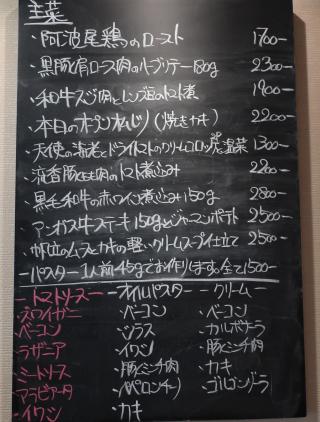 主菜
・阿波尾鶏のロースト 1700-
・黒豚肩ロース肉のハーブソテー180g 2300-
・和牛スジ肉とレンズ豆のトマト煮 1900-
・本日のオープンオムレツ(焼きカキ) 2200-
・天使の海老とドライトマトのクリームコロッケと温菜 1300-
・流香豚もも肉のトマト煮込み 2200-
・黒毛和牛の赤ワイン煮込み150g 2800-
・アンガス牛ステーキ150gとジャーマンポテト 2500-
・帆立のムースとカキの軽いクリームスープ仕立て 2500-
-パスター1人前45gでお作りします。全て1500-
-トマトソースー -オイルパスター -クリームー
・ズワイガニ ・ベーコン ・ベーコン
・ベーコン ・シラス ・カルボナーラ
・ラザニア ・イワシ ・豚ミンチ肉
・ミートソース ・豚ミンチ肉 ・カキ
・アラビアータ ・(ペペロンチーノ) ・ゴルゴンゾーラ
・イワシ ・カキ